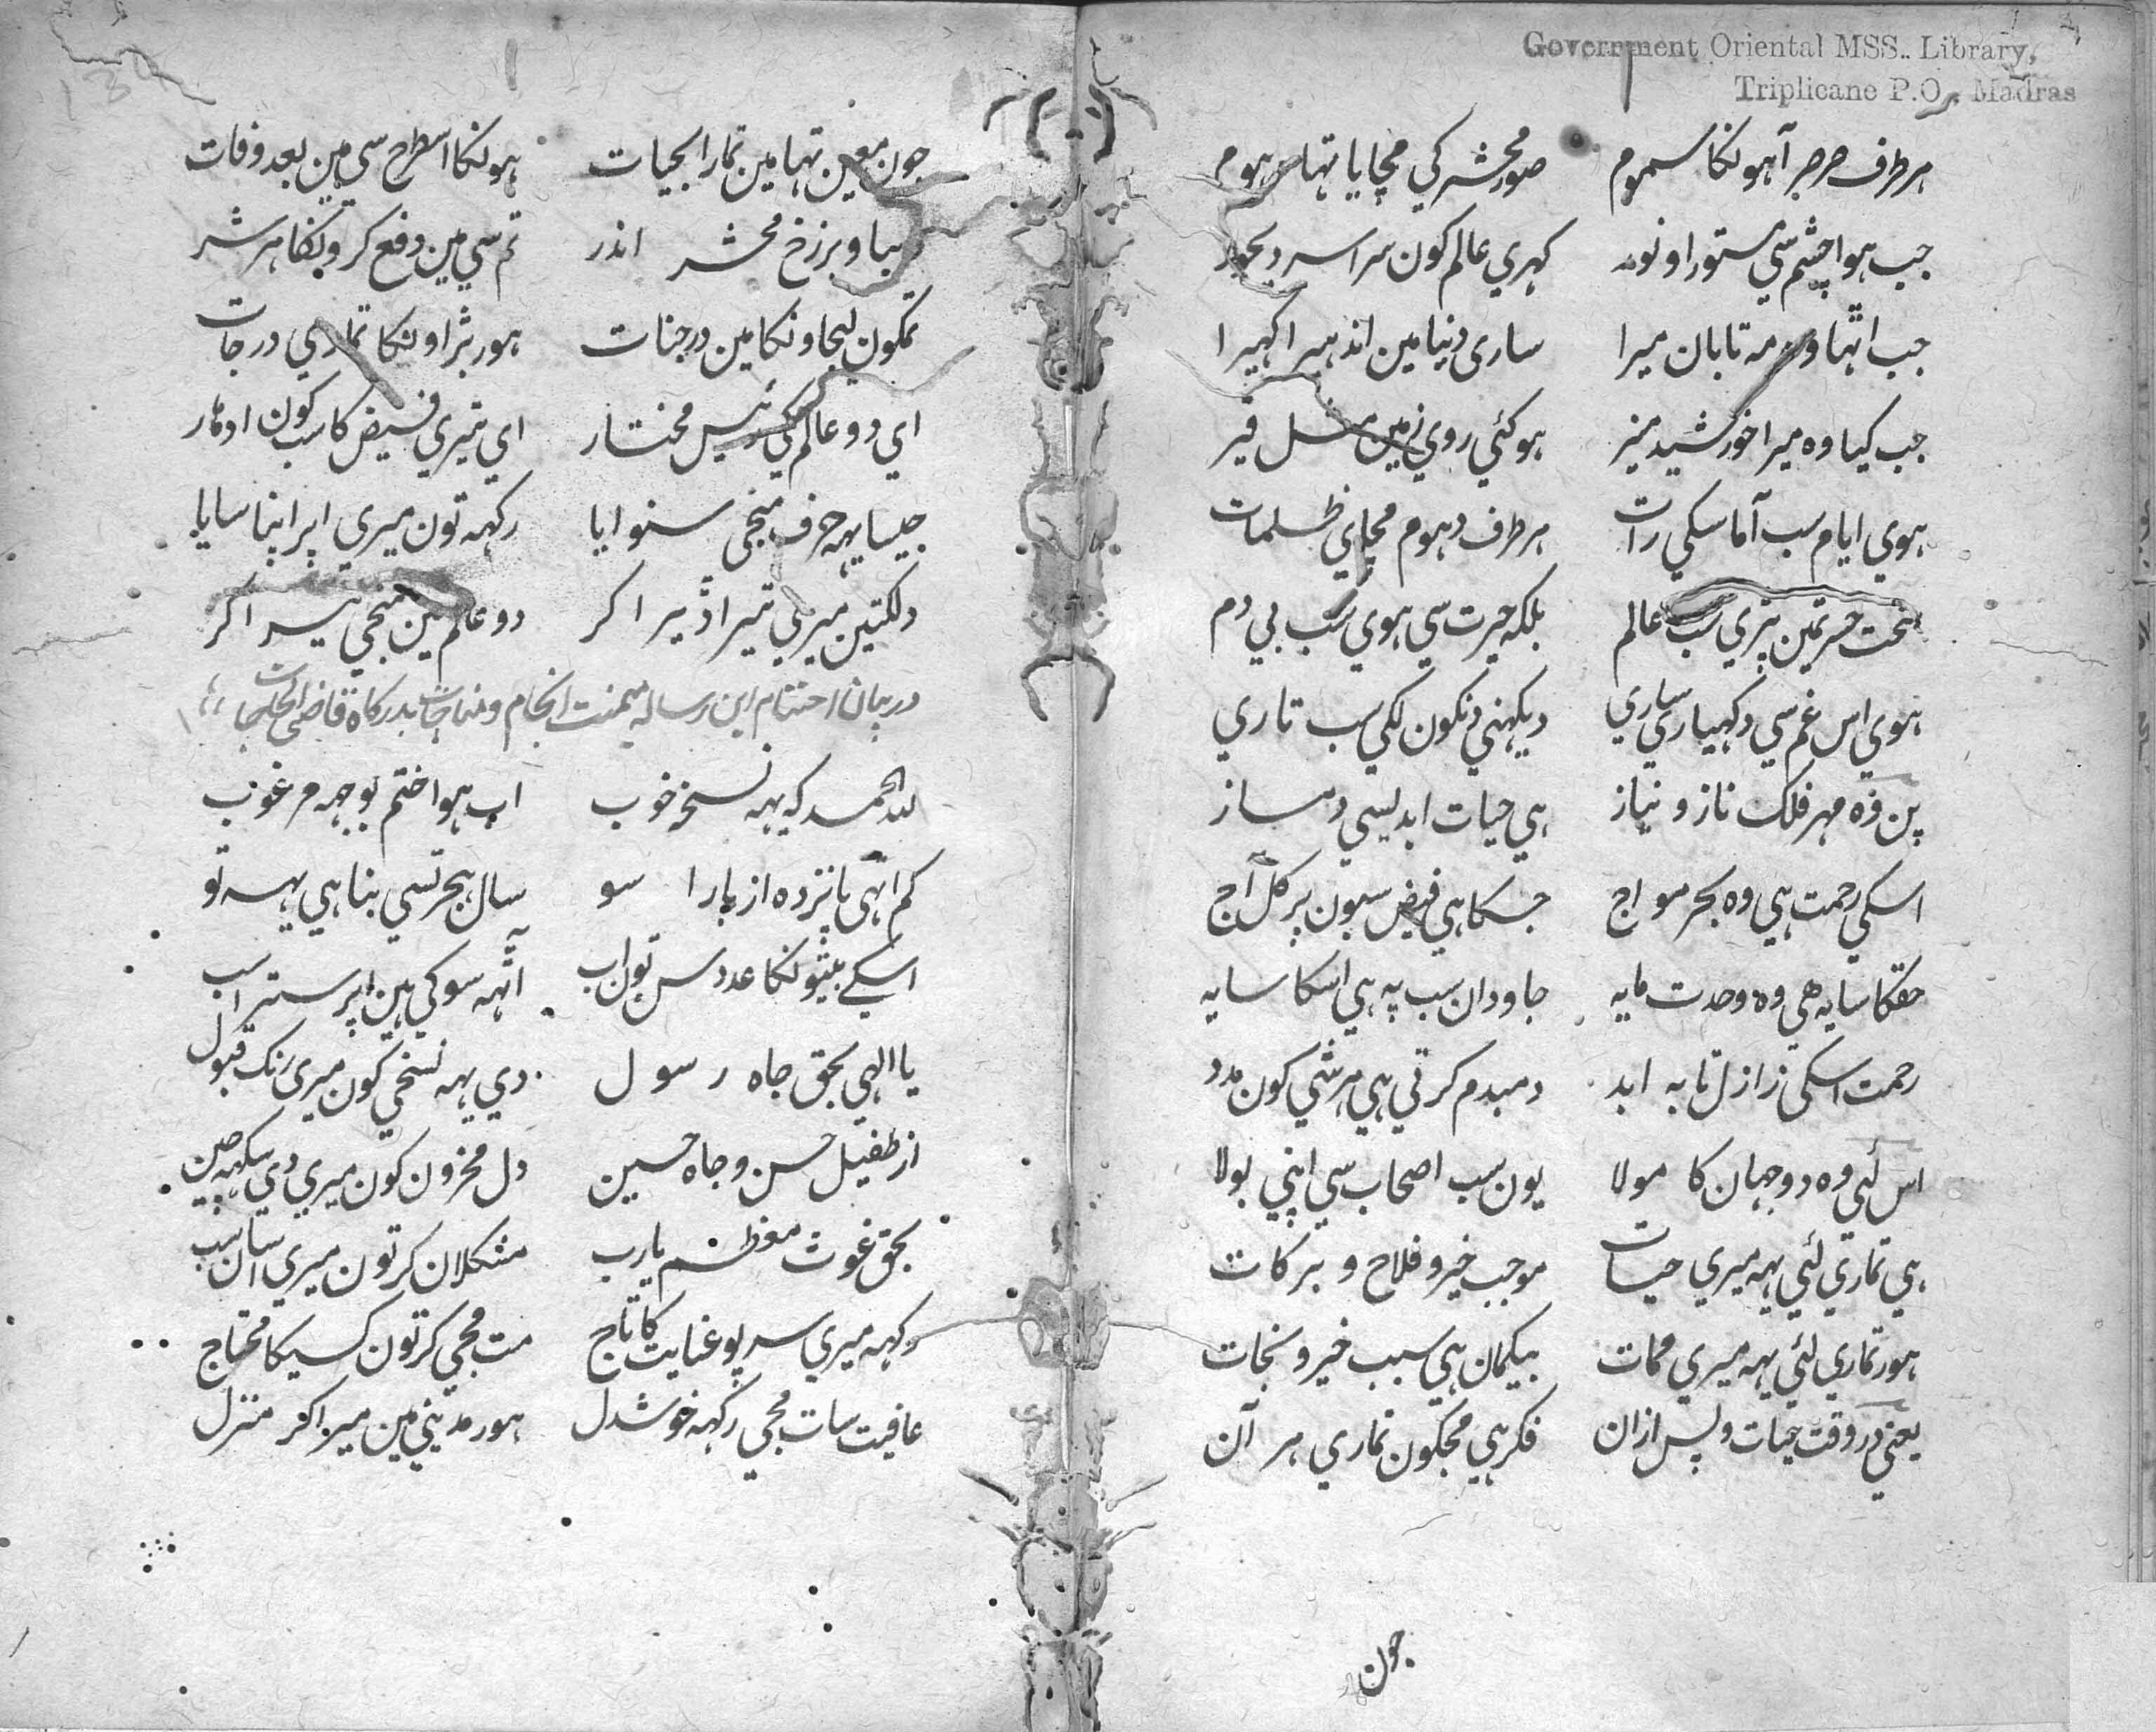 Government Oriental MSS.. Library,
Triplicane P.O., Madras
ہر طرف صرصر آہونکا سموم صور محشر کی مچایا تہا ہوم
جب ہوا چشم سی مستور او نور کہری عالم کون سراسر دیجور
جب اتہا وہ مہ تابان میرا ساری دنیا مین اندہیرا کہیرا
جب کیا وہ میرا خورشید منیر ہو کئی روی زمین مثل قیر
ہوی ایام سب آماسکی رات ہر طرف دہوم مچای ظلمات
تحت حسرتمین پڑی سب عالم بلکہ حیرت سی ہوی سب بی دم
ہوی اس غم سی دکہیاری ساری دیکہنی دنکون لکی سب تاری
پن وہ مہر فلک ناز و نیاز ہی حیات ابدیسی دمساز
اسکی رحمت ہی وہ بحر مواج جسکا ہی فیض سبون پر کل آج
حقکا سایہ هی وہ وحدت مایہ جاودان سب پہ ہی اسکا سایہ
رحمت اسکی ز ازل تا بہ ابد دمبدم کرتی ہی ہر شی کون مدد
اس لئی وہ دو جہان کا مولا یون سب اصحاب سی اپنی بولا
ہی تماری لئی یہہ میری حیات موجب خیر و فلاح و برکات
ہور تماری لئی یہہ میری ممات بیکمان ہی سبب خیر و نجات
یعنی در وقت حیات و پس ازان فکر ہی مجکون تماری ہر آن
جون
جون معین تہا مین تمارا بحیات ہونکا اسطرح سی مین بعد وفات
دنیا و برزخ محشر اندر تم سی مین دفع کرونکا ہر شر
تمکون لیجاونکا مین در جنات ہور بڑاونکا تماری درجات
ای دو عالم کی رئیس مختار ای تیری فیض کا سب کون ادہار
جیسا یہہ حرف منجی سنوایا رکہہ تون میری اپر اپنا سایا
دلکتین میری تیرا ڈیرا کر دو عالم مین منجی تیرا کر
در بیان اختتام این رسالہ میمنت انجام و مناجات بدرکاہ قاضی الحاجات
للہ الحمد کہ یہہ نسخہ خوب اب ہوا ختم بوجہ مرغوب
کم اتہی پانزدہ از بارا سو سال ہجرتسی بنا ہی یہہ تو
اسکے بیتونکا عدد سن تون اب آٹہہ سو کی ہین اپر ستر اسب
یا الہی بحق جاہ رسول دی یہہ نسخی کون میری رنک قبول
از طفیل حسن و جاہ حسین دل محزون کون میری دی سکہہ چین
بحق غوث معظم یارب مشکلان کر تون میری آسان سب
رکہہ میری سر پو عنایت کا تاج مت مجی کر تون کسیکا محتاج
عافیت سات مجی رکہہ خوشدل ہور مدینی مین میرا کر منزل